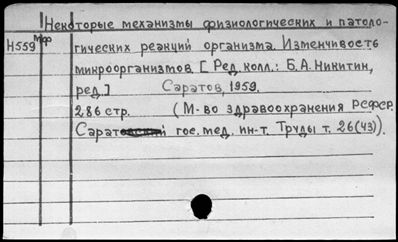 Некоторые механизмы физиологических и патоло-
Н559 мф гических реакций организма. Изменчивость
микроорганизмов. [Ред. колл.: Б.А. Никитин,
ред.] Саратов, 1959.
286 стр. (М-во здравоохранения РСФСР.
Сарат гос. мед. ин-т. Труды т. 26(43)).